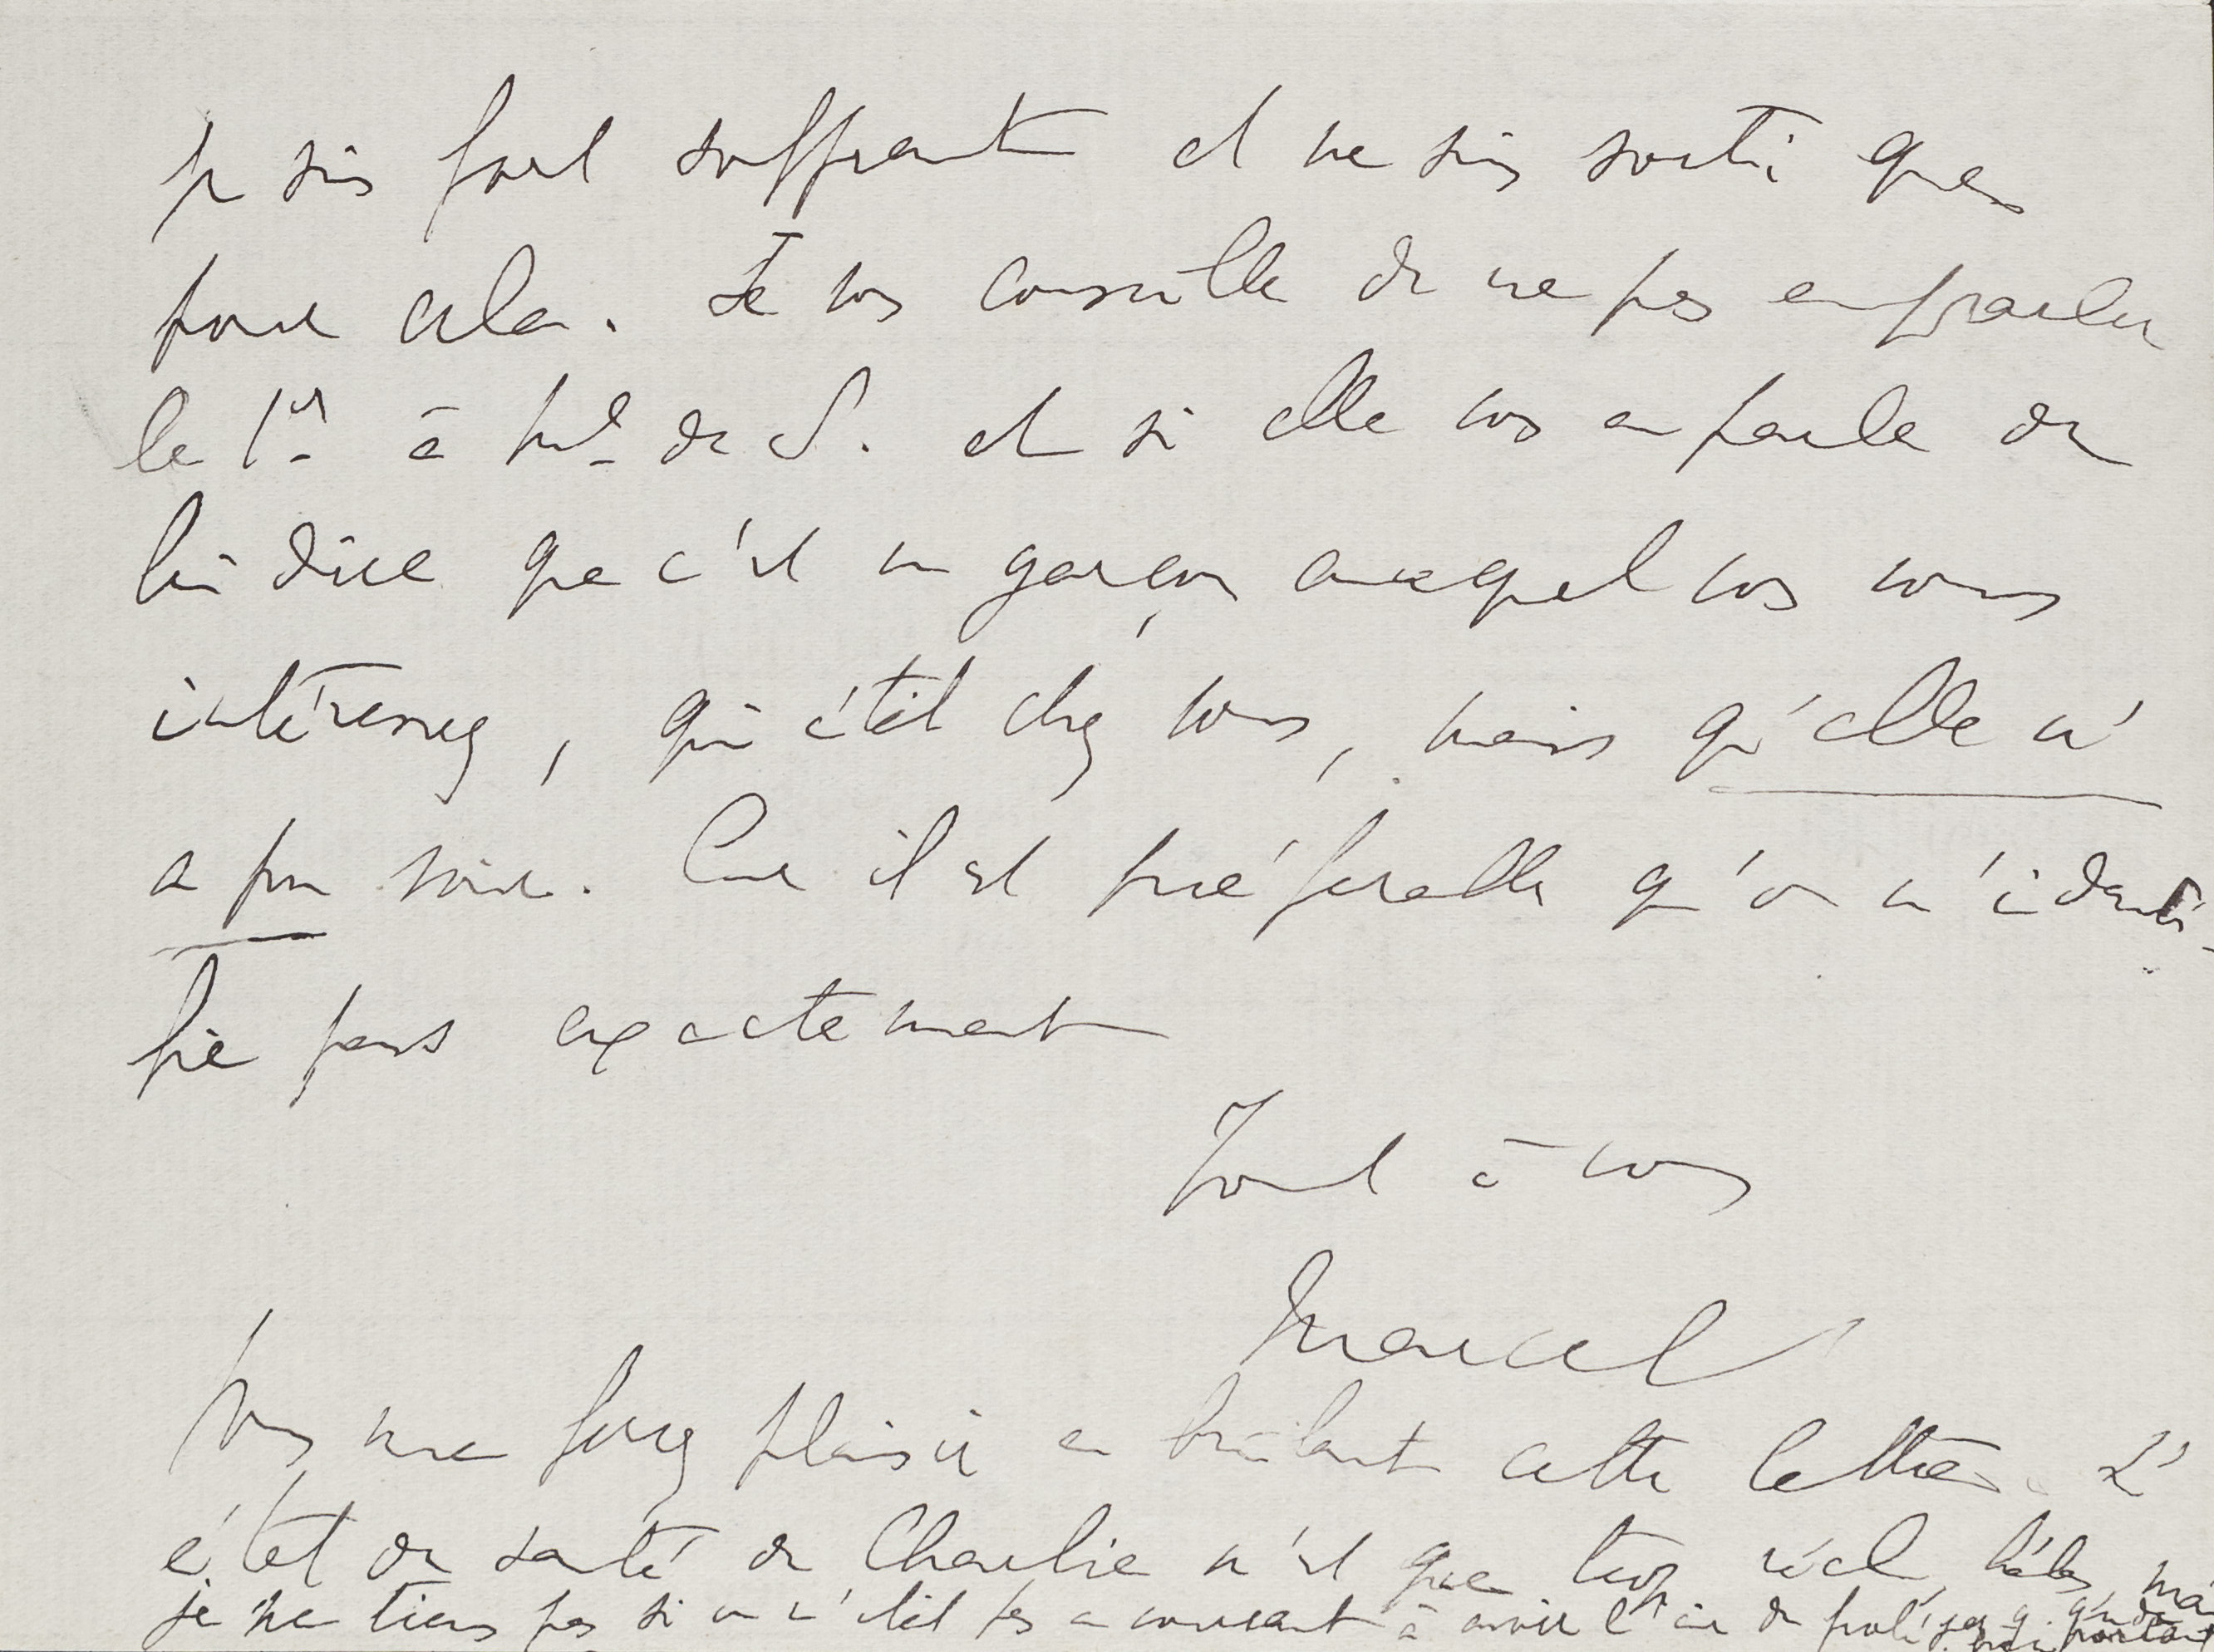 Je suis fort souffrant et ne suis sorti que
pour cela. Je vous conseille de ne pas en parler
le 1er à Me de S. et si elle vous en parle de
lui dire que c'est un garçon auquel vous vous
intéressez, qui était chez vous, mais qu'elle n'
a pu voir. Car il est préférable qu'on n'identi-
fie pas exactement
Tout à vous
Marcel
Vous me ferez plaisir en brûlant cette lettre. L'
état de santé de Charlie n'est que trop réel, hélas, mais
je ne tiens pas si on n'était pas au courant à avoir l'air de